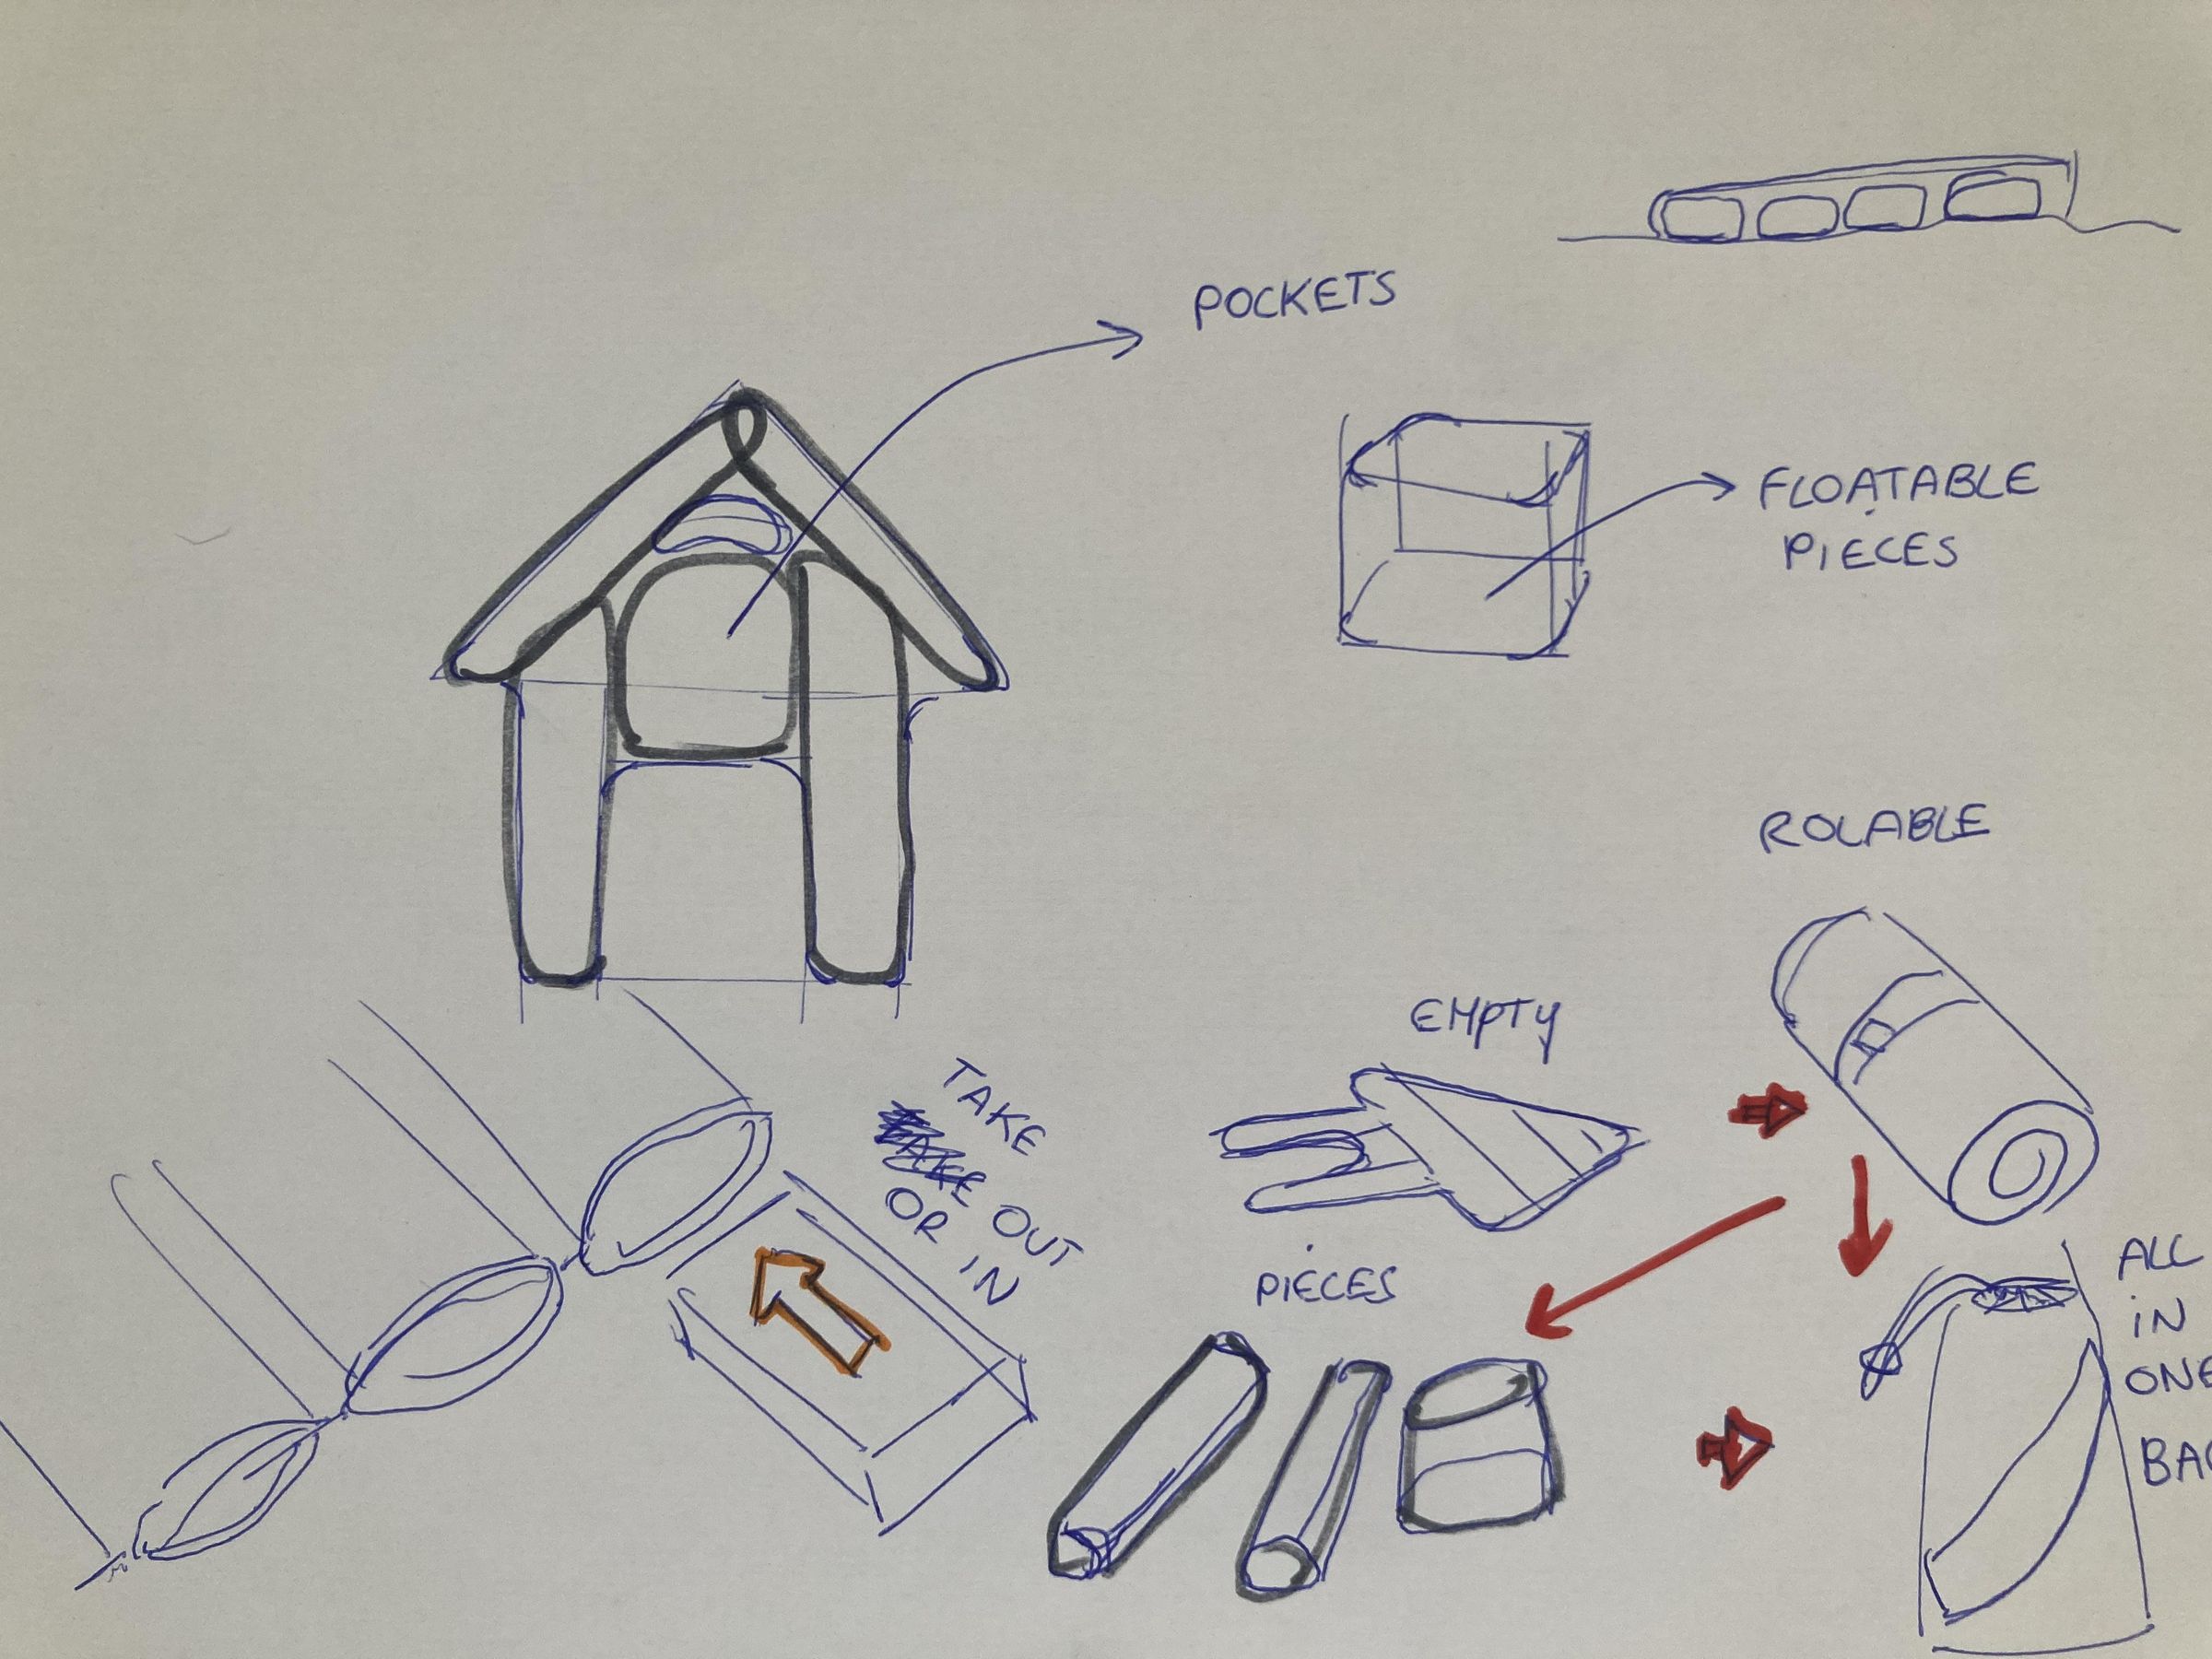 POCKETS
FLOATABLE
PIECES
ROLABLE
EMPTY
TAKE
OUT
OR IN
PIECES
ALL
IN
ONE
BAG